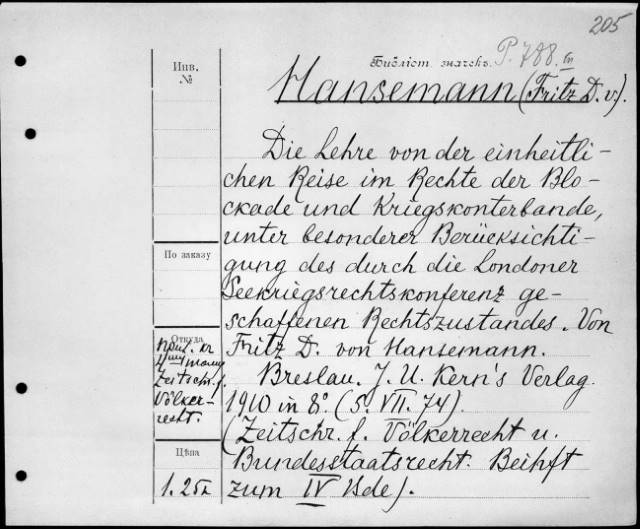 205
Библіот. значекъ. P. 788. fn
Инв.
№
Hansemann (Fritz D. v.).
Die Lehre von der einheitli-
chen Reise im Rechte der Blo-
ckade und Kriegskonterbande,
unter besonderer Berücksichti-
gung des durch die Londoner
Seekriegsrechtskonferenz ge-
schaffenen Rechtszustandes. Von
Fritz D. von Hansemann.
Breslau. J. U. Kern's Verlag.
1910 in 8º. (5. VII. 74).
(Zeitschr. f. Völkerrecht u.
Bundesstaatsrecht. Beihft
zum IV Bde).
По заказу
Откуда
Zeitschr. f.
Völker-
recht.
Цѣна